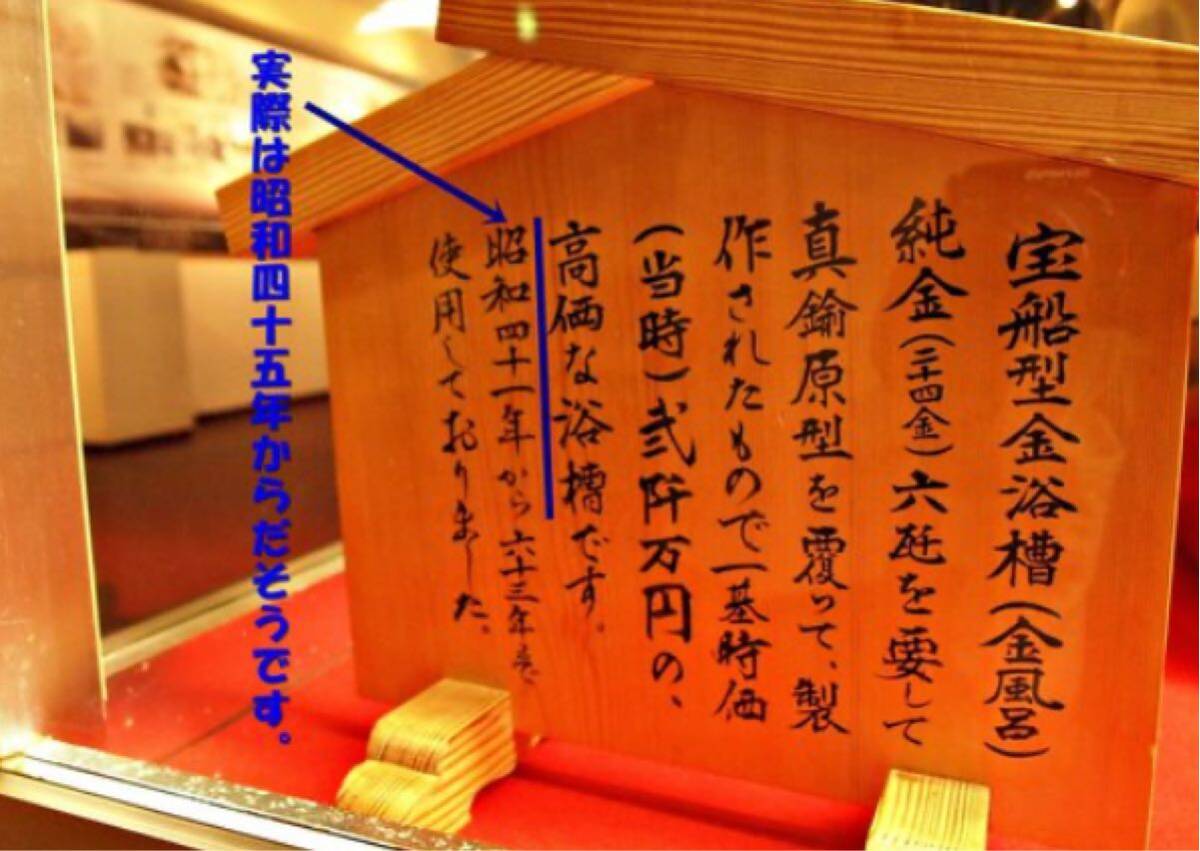 宝船型金浴槽（金風呂）
純金（二十四金）六瓩を要して
真鍮原型を覆って、製
作されたもので一基時価
（当時）弐阡万円の、
高価な浴槽です。
昭和四十一年から六十三年まで
使用して居りました。
実際は昭和四十五年からだそうです。